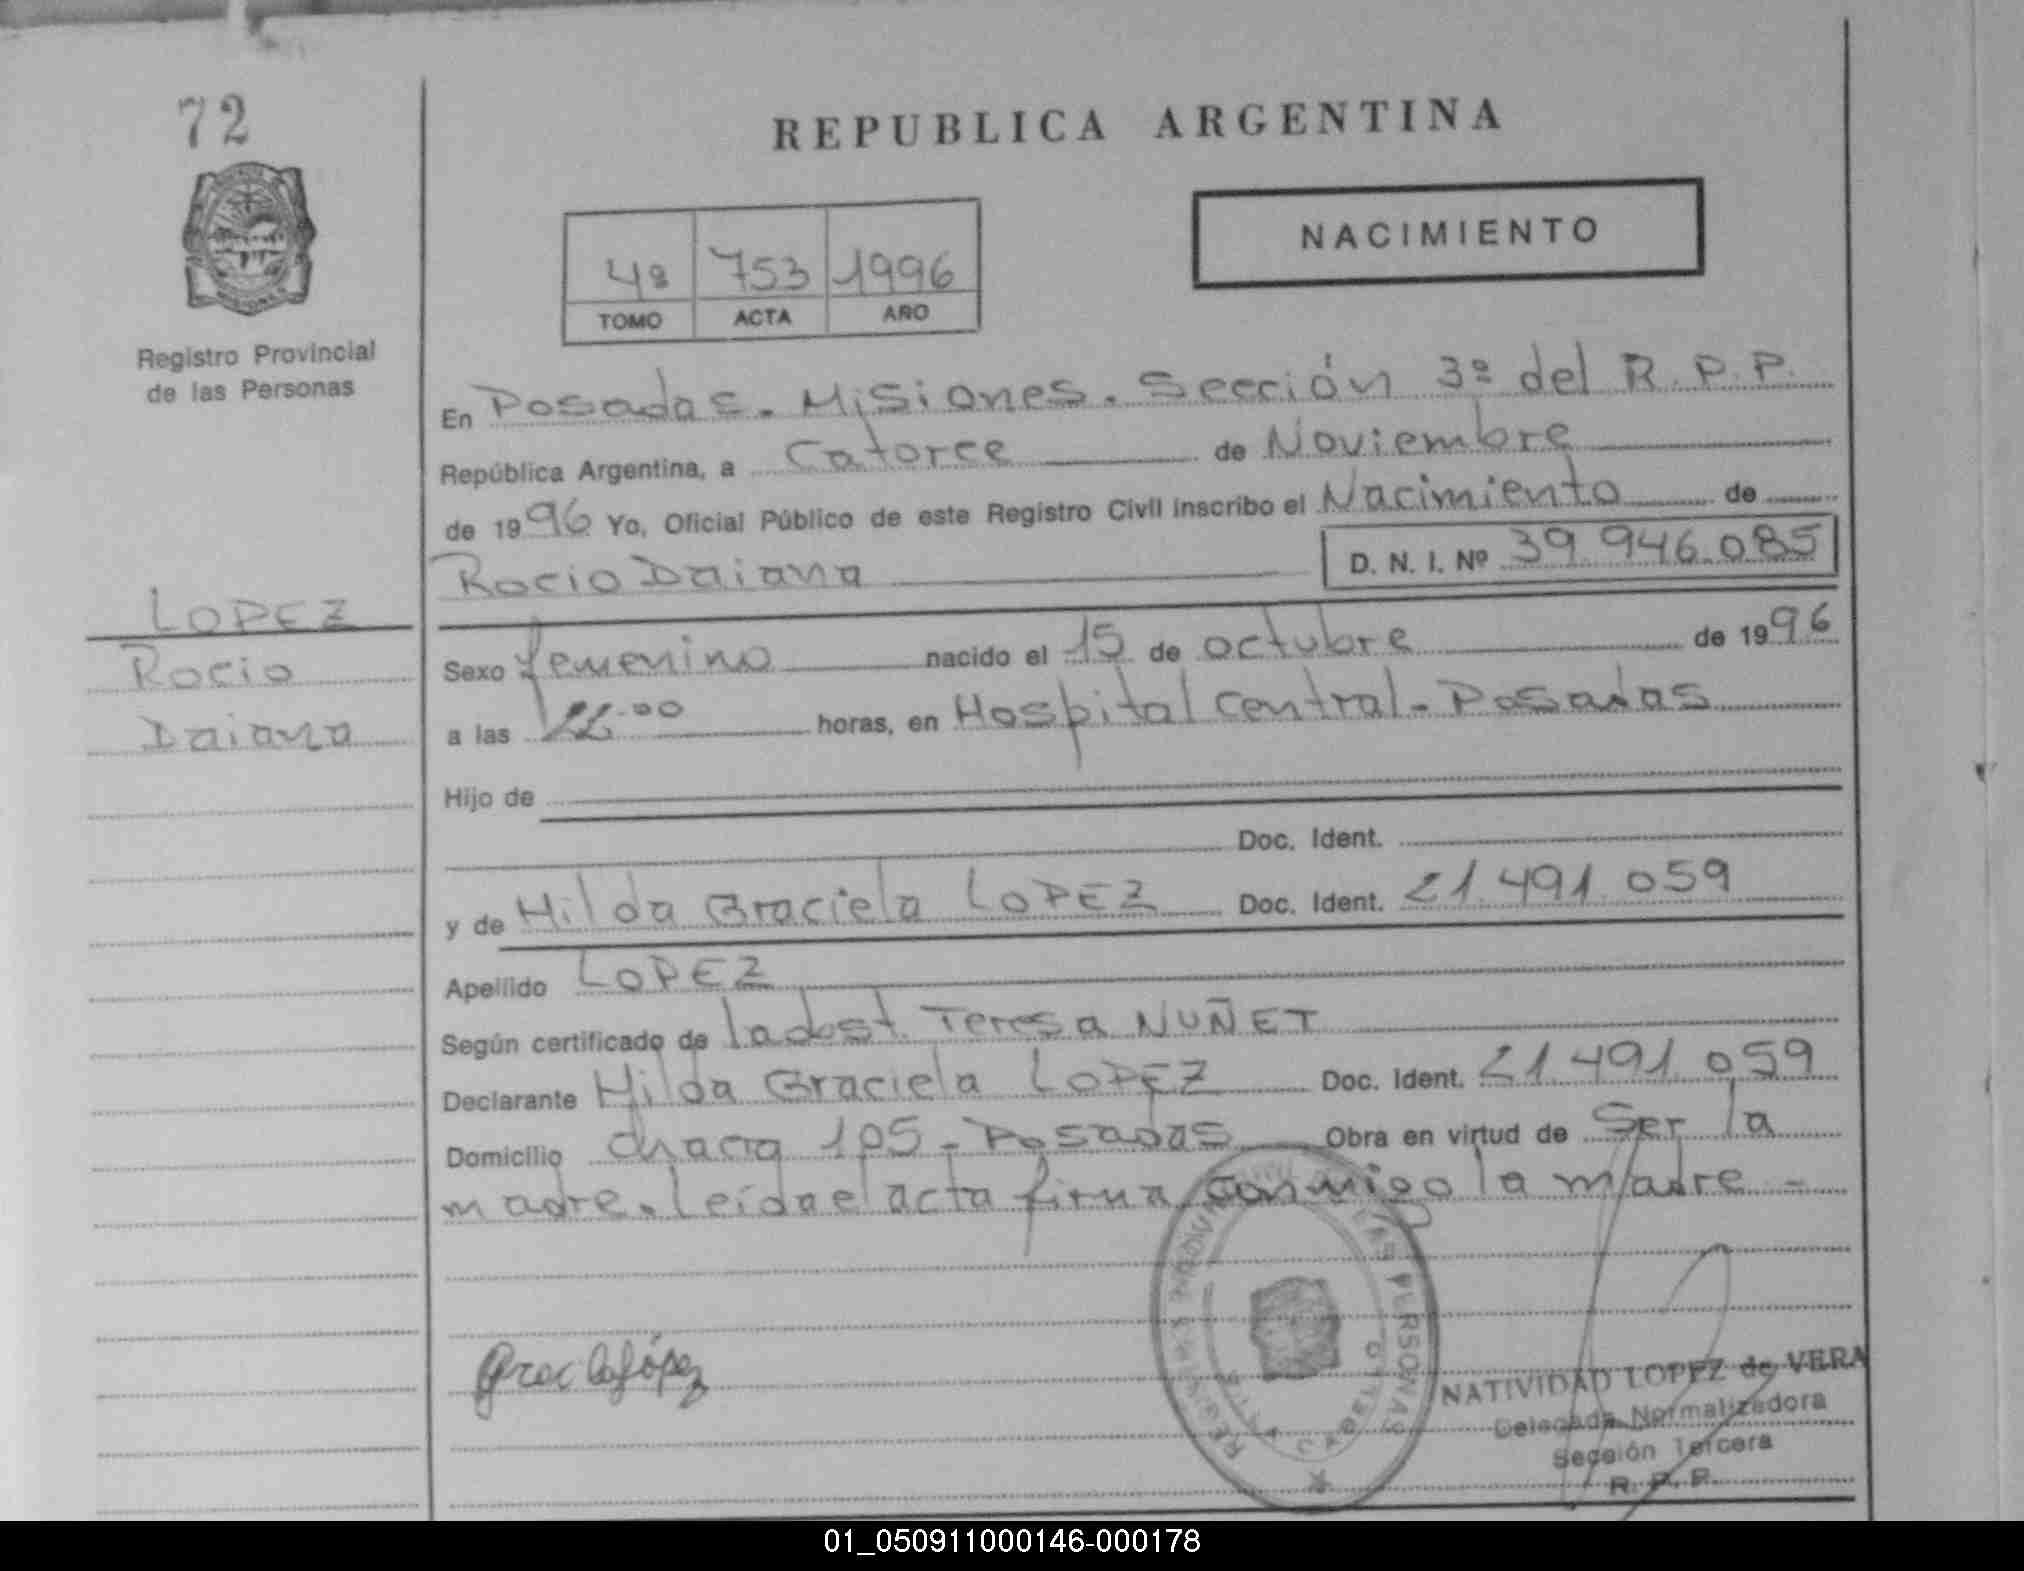 72
REPUBLICA ARGENTINA
NACIMIENTO
4º 753 1996
TOMO ACTA AÑO
Registro Provincial
de las Personas
En Posadas. Misiones. Sección 3º del R.P.P.
República Argentina, a Catorce de Noviembre
de 1996 Yo, Oficial Público de este Registro Civil inscribo el Nacimiento de
Rocio Daiana D. N. I. Nº 39.946.085
LOPEZ
Rocio
Daiana
Sexo femenino nacido el 15 de octubre de 1996
a las horas, en Hospital Central - Posadas
Hijo de
Doc. Ident.
y de Hilda Graciela LOPEZ Doc. Ident. 21.491.059
Apellido LOPEZ
Según certificado de la obst. Teresa NUÑET
Declarante Hilda Graciela LOPEZ Doc. Ident. 21.491.059
Domicilio chacra 105 - Posadas Obra en virtud de Ser la
madre. leída el acta firma conmigo la madre -
NATIVIDAD LOPEZ de VERA
Delegada Normalizadora
Sección Tercera
R. P. P.
01_050911000146-000178